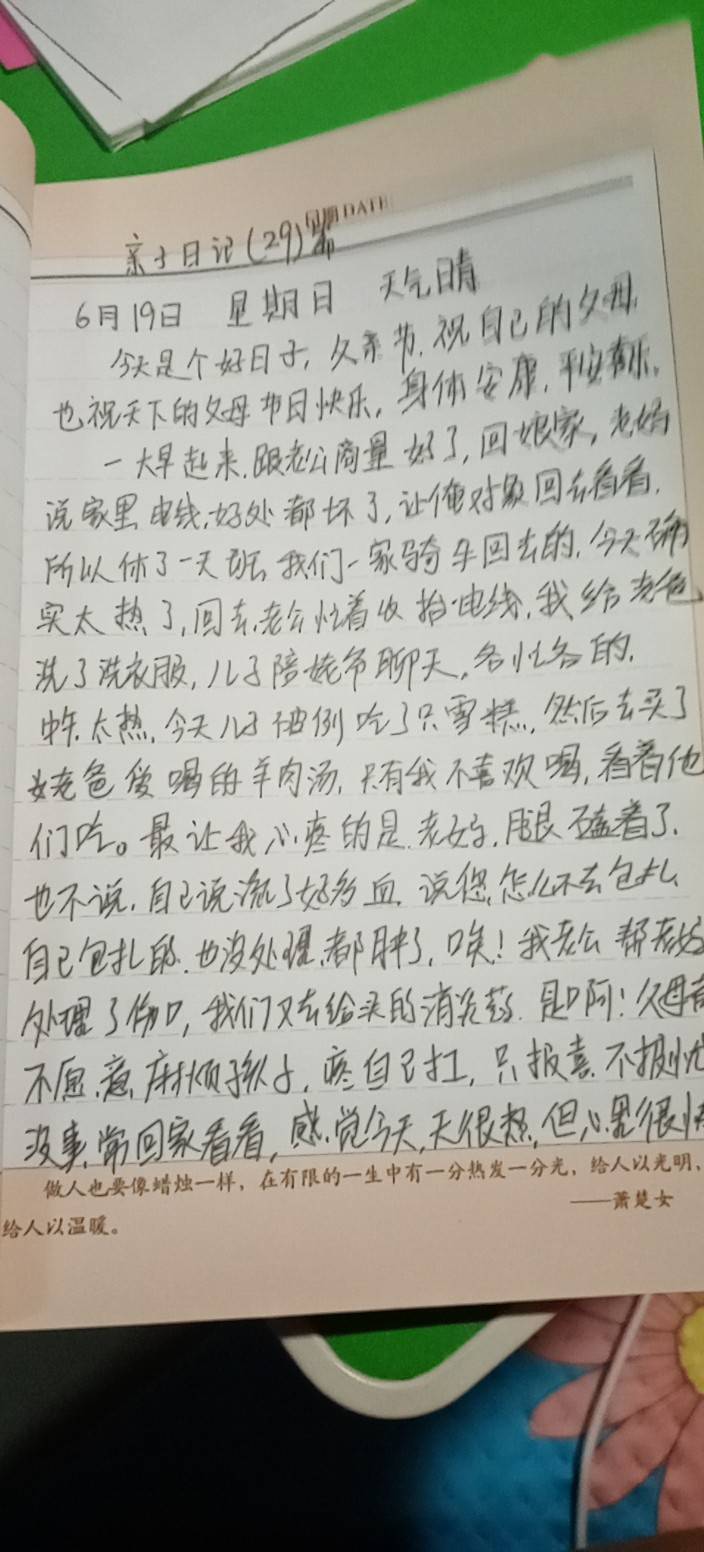 日期 DATE
亲子日记(29)篇
6月19日 星期日 天气晴
今天是个好日子,父亲节,祝自己的父母,
也祝天下的父母节日快乐,身体安康,平安
一大早起来,跟老公商量好了,回娘家,老妈
说家里电线,好处都坏了,让俺对象回去看看,
所以休了一天班,我们一家骑车回去的,今天确
实太热了,回去,老公忙着收拾电线,我给老爸
洗了洗衣服,儿子陪姥爷聊天,各忙各的,
中午太热,今天儿子破例吃了只雪糕,然后去买了
爸爱喝的羊肉汤,只有我不喜欢喝,看着他
们吃。最让我心疼的是老妈,腿磕着了,
也不说,自己说流了好多血,说您怎么不去包扎
自己包扎的,也没处理,都肿了,唉!我老公帮老妈
处理了伤口,我们又去给买的消炎药,是啊!父母
不愿意麻烦孩子,疼自己扛,只报喜不报忧
没事,常回家看看,感觉今天,天很热,但心里很
做人也要像蜡烛一样,在有限的一生中有一分热发一分光,给人以光明、
——萧楚女
给人以温暖。